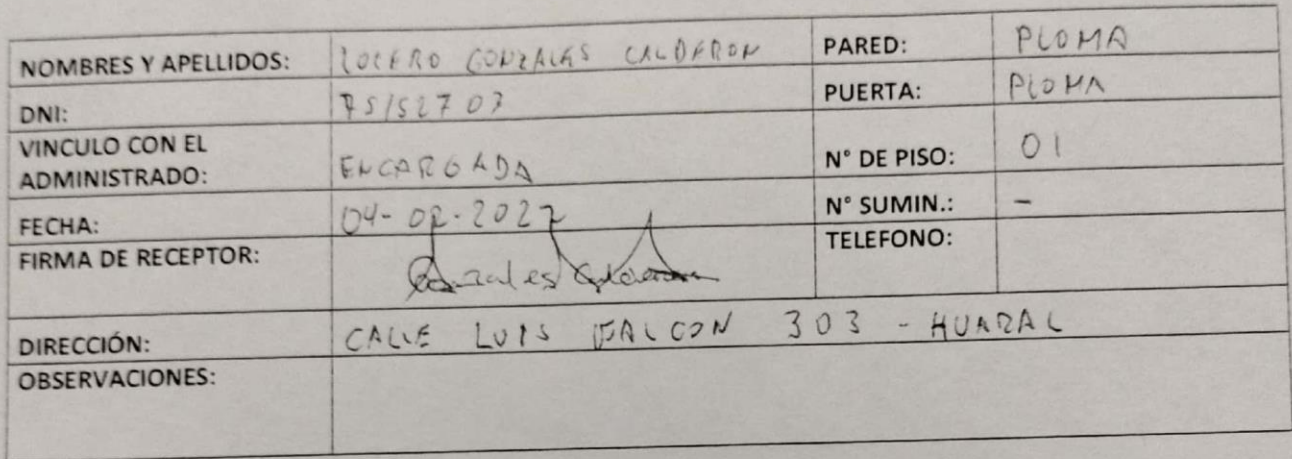 NOMBRES Y APELLIDOS: LUCERO GONZALES CALDERON PARED: PLOMA
DNI: 75152703 PUERTA: PLOMA
VINCULO CON EL
ADMINISTRADO: ENCARGADA N° DE PISO: 01
FECHA: 04-02-2022 N° SUMIN.: -
FIRMA DE RECEPTOR: Gonzales Calderon TELEFONO:
DIRECCIÓN: CALLE LUIS FALCON 303 - HUARAL
OBSERVACIONES: